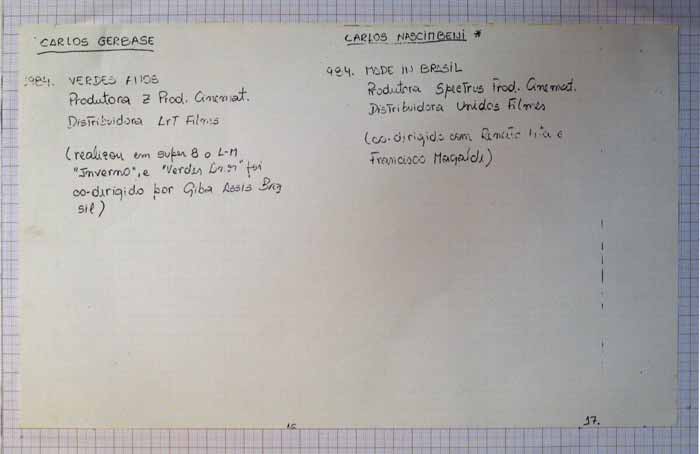 CARLOS GERBASE
1984. VERDES ANOS
Produtora Z Prod. Cinemat.
Distribuidora LrT Filmes
(realizou em super 8 o L-M
"Inverno", e "Verdes Anos" foi
co-dirigido por Giba Assis Bra
sil)
16
CARLOS NASCIMBENI *
984. MADE IN BRASIL
Produtora Spectrus Prod. Cinemat.
Distribuidora Unidos Filmes
(co-dirigido com e
Francisco Magaldi)
17.